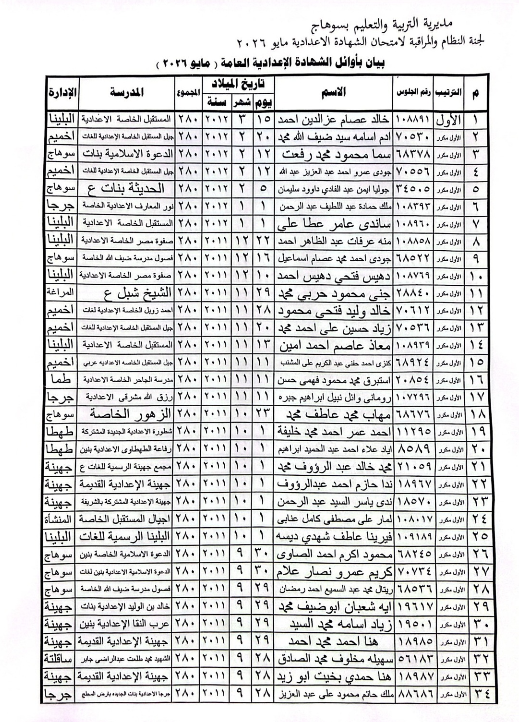 مديرية التربية والتعليم بسوهاج
لجنة النظام والمراقبة لامتحان الشهادة الاعدادية مايو ٢٠٢٦
بيان بأوائل الشهادة الإعدادية العامة ( مايو ٢٠٢٦ )
م الترتيب رقم الجلوس الاسم تاريخ الميلاد يوم شهر سنة المجموع المدرسة الإدارة
١ الأول ١٠٨٨٩١ خالد عصام عزالدين احمد ١٥ ٣ ٢٠١٢ ٢٨٠ المستقبل الخاصة الاعدادية البلينا
٢ الأول مكرر ٧٠٥٣٠ ادم اسامه سيد ضيف الله محمد ٢٠ ٢ ٢٠١٢ ٢٨٠ جيل المستقبل الخاصة الإعدادية للغات اخميم
٣ الأول مكرر ٦٨٣٧٨ سما محمود محمد رفعت ١٢ ٢ ٢٠١٢ ٢٨٠ الدعوة الاسلامية بنات سوهاج
٤ الأول مكرر ٧٠٥٥٦ جودى عمرو احمد عبد العزيز عبد الله ١٢ ٢ ٢٠١٢ ٢٨٠ جيل المستقبل الخاصة الإعدادية للغات اخميم
٥ الأول مكرر ٣٤٠٠٥ جوليا ايمن عبد الفادي داوود سليمان ٥ ٢ ٢٠١٢ ٢٨٠ الحديثة بنات ع سوهاج
٦ الأول مكرر ١٠٨٣٩٣ ملك حمادة عبد اللطيف عبد الرحمن ١ ١ ٢٠١٢ ٢٨٠ نور المعارف الخاصة الاعدادية جرجا
٧ الأول مكرر ١٠٨٩٦٠ ساندى عامر عطا على ١ ١ ٢٠١٢ ٢٨٠ المستقبل الخاصة الاعدادية البلينا
٨ الأول مكرر ١٠٨٨٥٨ منه عرفات عبد الظاهر احمد ٢٢ ١٢ ٢٠١١ ٢٨٠ صفوة مصر الخاصة الاعدادية البلينا
٩ الأول مكرر ٦٨٥٢٢ جودى احمد محمد عصام اسماعيل ١٦ ١٢ ٢٠١١ ٢٨٠ فصول مدرسة ضيف الله الخاصة سوهاج
١٠ الأول مكرر ١٠٨٧٦٩ دهيس فتحي دهيس احمد ١٠ ١٢ ٢٠١١ ٢٨٠ صفوة مصر الخاصة الاعدادية البلينا
١١ الأول مكرر ٢٨٨٤٠ جنى محمود حربي محمد ٢٩ ١١ ٢٠١١ ٢٨٠ الشيخ شبل ع المراغة
١٢ الأول مكرر ٧٠٦١٢ خالد وليد فتحي محمود ٢٨ ١١ ٢٠١١ ٢٨٠ احمد زويل الخاصة الإعدادية لغات اخميم
١٣ الأول مكرر ٧٠٥٣٦ زياد حسين على احمد محمد ٢٠ ١١ ٢٠١١ ٢٨٠ جيل المستقبل الخاصة الإعدادية للغات اخميم
١٤ الأول مكرر معاذ عاصم احمد امين ١٣ ١١ ٢٠١١ ٢٨٠ المستقبل الخاصة الاعدادية البلينا
١٥ الأول مكرر ٦٨٩٢٤ كنزى احمد حفنى عبد الكريم على المشنب ١١ ١١ ٢٠١١ ٢٨٠ جيل المستقبل الخاصه الاعداديه عربي اخميم
١٦ الأول مكرر ٢٠٨٥٤ استبرق محمد محمود فهمى حسن ١١ ١١ ٢٠١١ ٢٨٠ مدرسة الخاصة الاعدادية طما
١٧ الأول مكرر ١٠٧٢٩٦ رومانى وائل نبيل ابراهيم جبره ١ ١١ ٢٠١١ ٢٨٠ رزق الله مشرقى الاعدادية جرجا
١٨ الأول مكرر ٦٨٦٧٦ مهاب محمد عاطف محمد ٢٣ ١٠ ٢٠١١ ٢٨٠ الزهور الخاصة سوهاج
١٩ الأول مكرر ١١٢٩٥ احمد عمر احمد محمد خليفة ١ ١٠ ٢٠١١ ٢٨٠ شطورة الاعدادية الجديدة المشتركة طهطا
٢٠ الأول مكرر ٨٥٨٩ اياد علاء احمد عبد الحميد ابراهيم ١ ١٠ ٢٠١١ ٢٨٠ رفاعة الطهطاوى الاعدادية بنين طهطا
٢١ الأول مكرر ٢١٠٥٩ محمد خالد عبد الرؤوف محمد ١ ١٠ ٢٠١١ ٢٨٠ مجمع جهينة الرسمية للغات ع جهينة
٢٢ الأول مكرر ١٨٩٦٧ ندا حازم احمد عبدالرؤوف ١ ١٠ ٢٠١١ ٢٨٠ جهينة الإعدادية القديمة جهينة
٢٣ الأول مكرر ١٨٥٧٠ ندى ياسر السيد عبد الرحمن ١ ١٠ ٢٠١١ ٢٨٠ جهينة الاعدادية المشتركة بالشريفة جهينة
٢٤ الأول مكرر ١٠٨٠١٧ لمار على مصطفى كامل عنابى ١ ١٠ ٢٠١١ ٢٨٠ اجيال المستقبل الخاصة المنشأة
٢٥ الأول مكرر ١٠٩١٨٩ فيرينا عاطف شهدي ديسه ١ ١٠ ٢٠١١ ٢٨٠ البلينا الرسمية للغات البلينا
٢٦ الأول مكرر ٦٨٢٤٥ محمود اكرم احمد الصاوى ٣٠ ٩ ٢٠١١ ٢٨٠ الدعوة الاسلامية الخاصة بنين سوهاج
٢٧ الأول مكرر ٧٠٧٣٤ كريم عمرو نصار علام ٣٠ ٩ ٢٠١١ ٢٨٠ الدعوة الاسلامية الاعدادية بنين لغات سوهاج
٢٨ الأول مكرر ٦٨٥٣٦ ريتال محمد عبد السميع احمد رمضان ٢٩ ٩ ٢٠١١ ٢٨٠ فصول مدرسة ضيف الله الخاصة سوهاج
٢٩ الأول مكرر ١٩٦١٧ ايه شعبان ابوضيف محمد ٢٩ ٩ ٢٠١١ ٢٨٠ خالد بن الوليد الإعدادية بنات جهينة
٣٠ الأول مكرر ١٩٥٠١ زياد اسامه محمد السيد ٢٩ ٩ ٢٠١١ ٢٨٠ عرب النقا الإعدادية بنين جهينة
٣١ الأول مكرر ١٨٩٨٥ هنا احمد محمد احمد ٢٩ ٩ ٢٠١١ ٢٨٠ جهينة الإعدادية القديمة جهينة
٣٢ الأول مكرر ٥٦١٨٣ سهيله مخلوف محمد الصادق ٢٨ ٩ ٢٠١١ ٢٨٠ الشهيد محمد طلعت عبدالراضى جابر ساقلتة
٣٣ الأول مكرر ١٨٩٨٧ هنا حمدي بخيت ابو زيد ٢٨ ٩ ٢٠١١ ٢٨٠ جهينة الإعدادية القديمة جهينة
٣٤ الأول مكرر ٨٨٦٨٦ ملك حاتم محمود على عبد العزيز ٢٨ ٩ ٢٠١١ ٢٨٠ جرجا الاعدادية بنات الجديده بارض المحلج جرجا